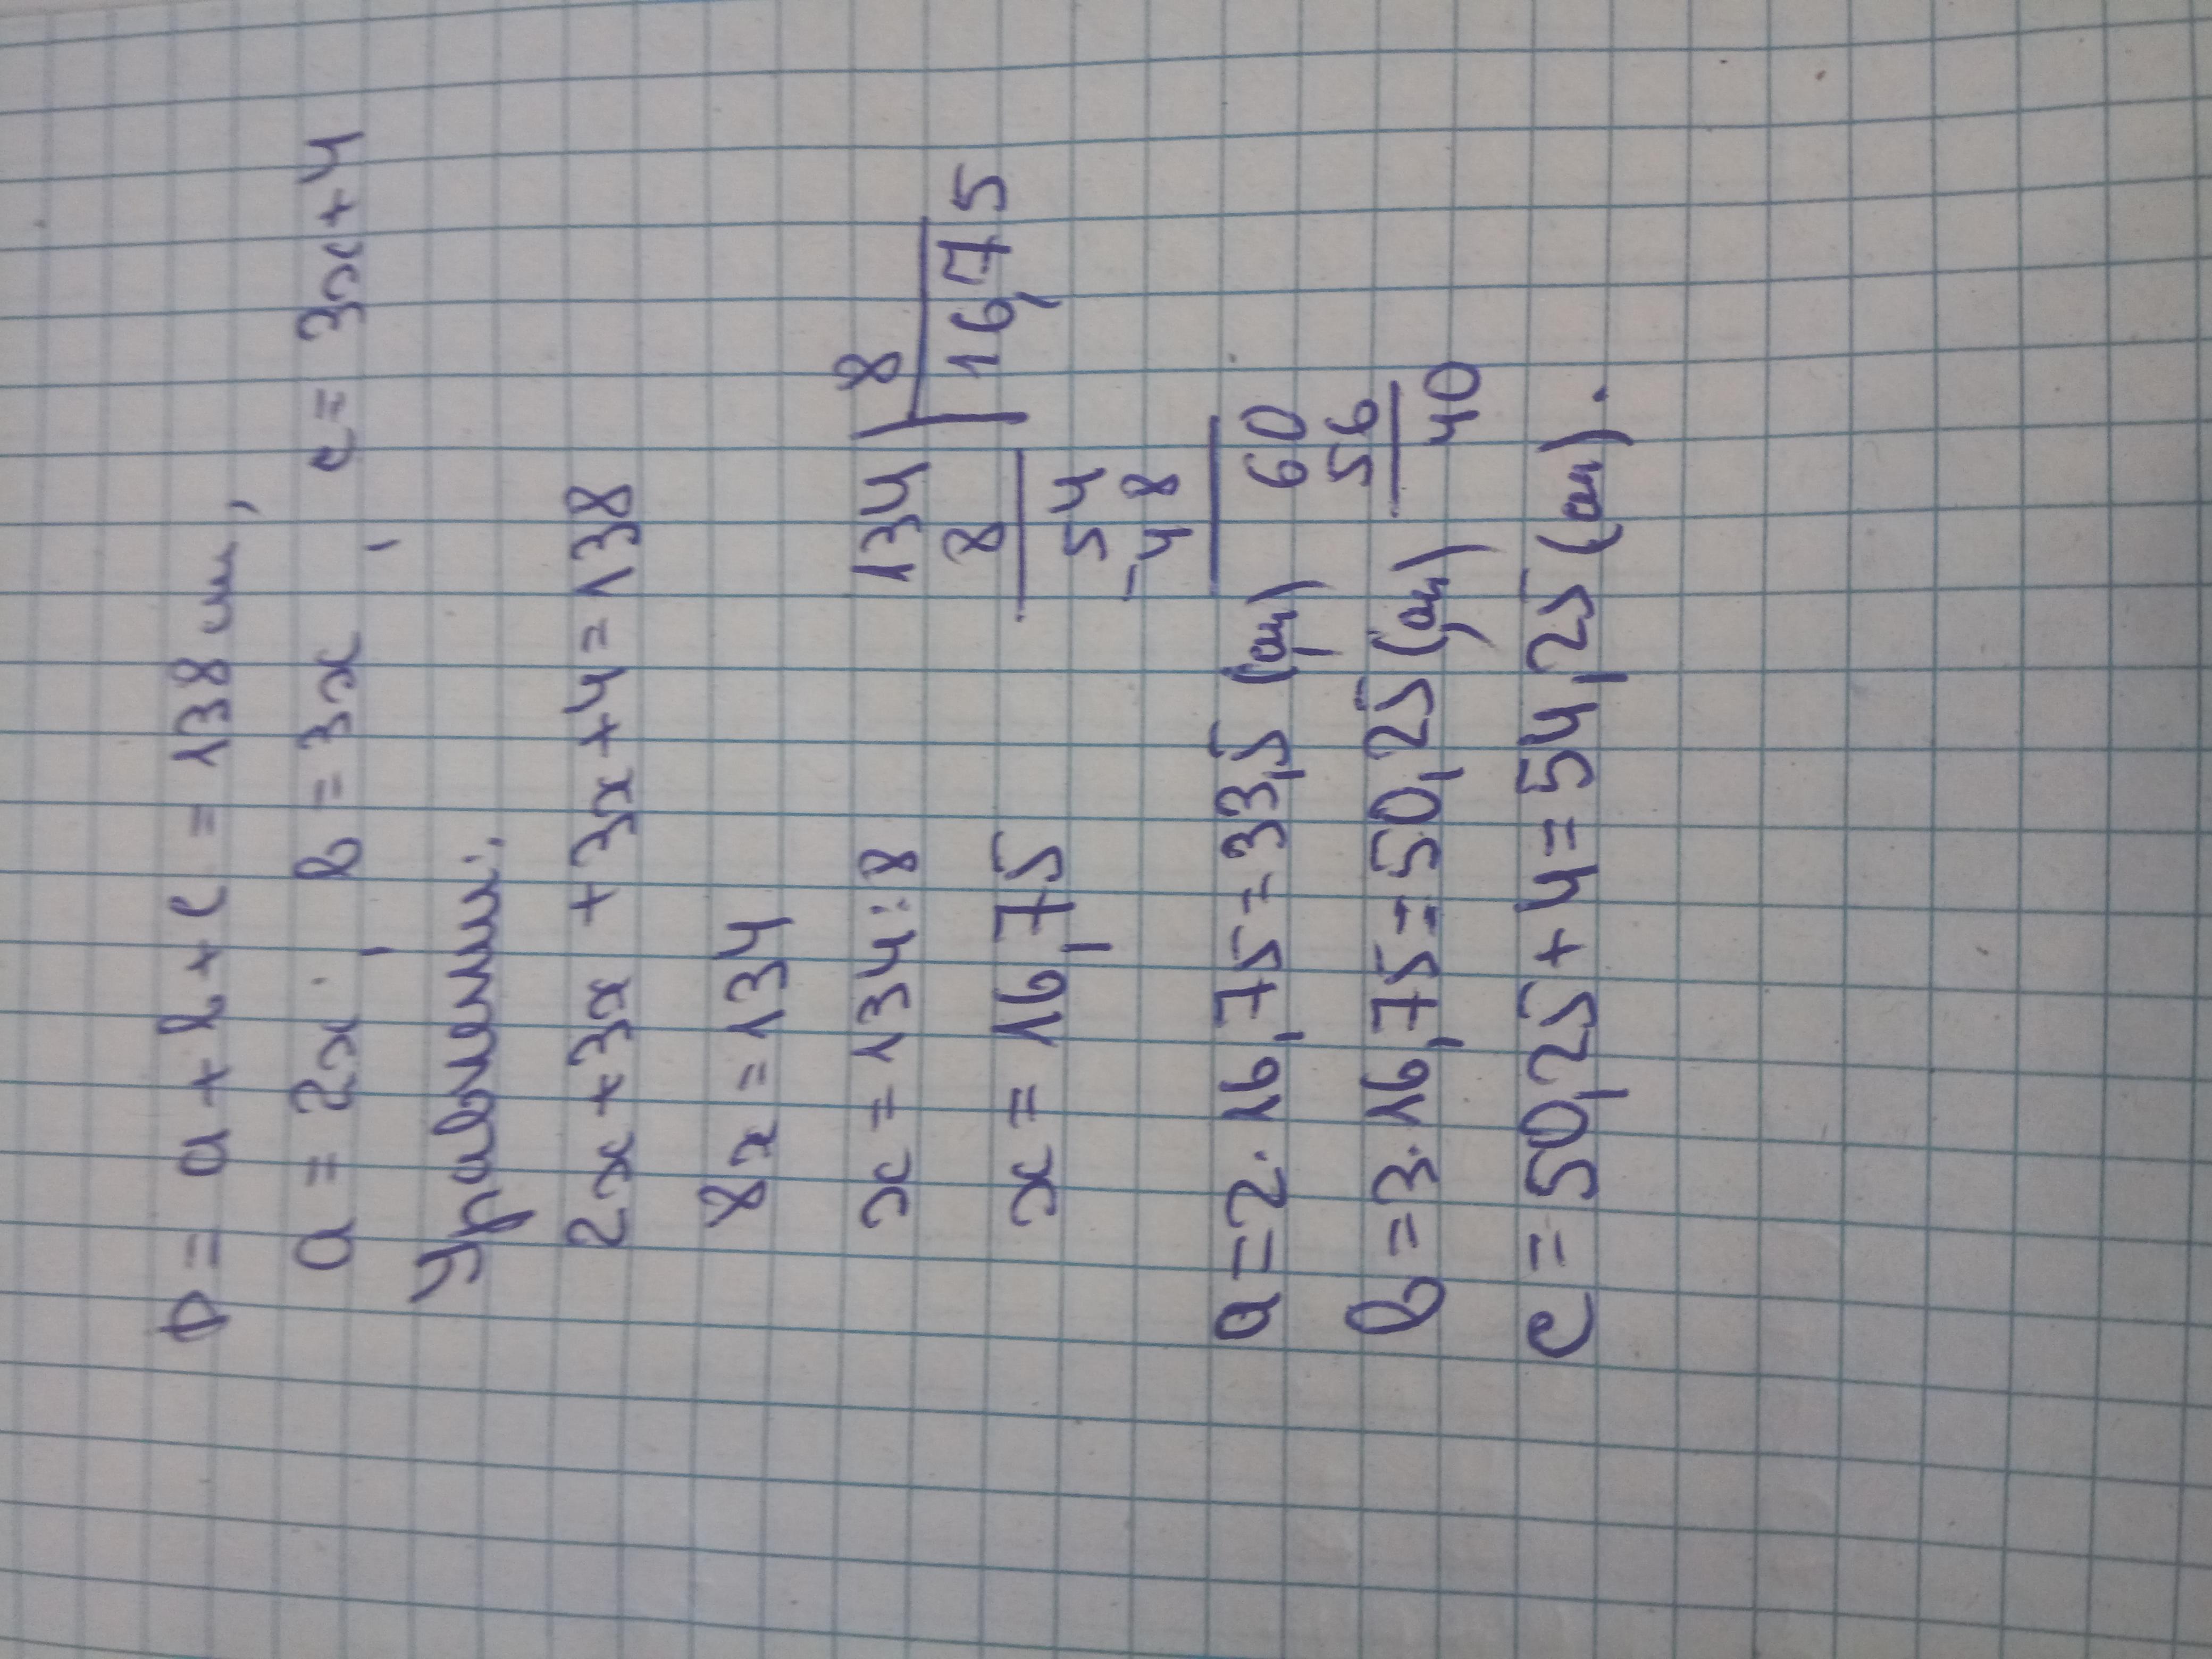 P = a + b + c = 138 см,
a = 2x, b = 3x, c = 3x+4
Уравнение:
2x+3x+3x+4=138
8x=134
x=134:8
134 | 8
8 | 16,75
54
-48
60
56
40
x = 16,75
a=2·16,75=33,5 (см)
b=3·16,75=50,25(см)
c=50,25+4=54,25(см).